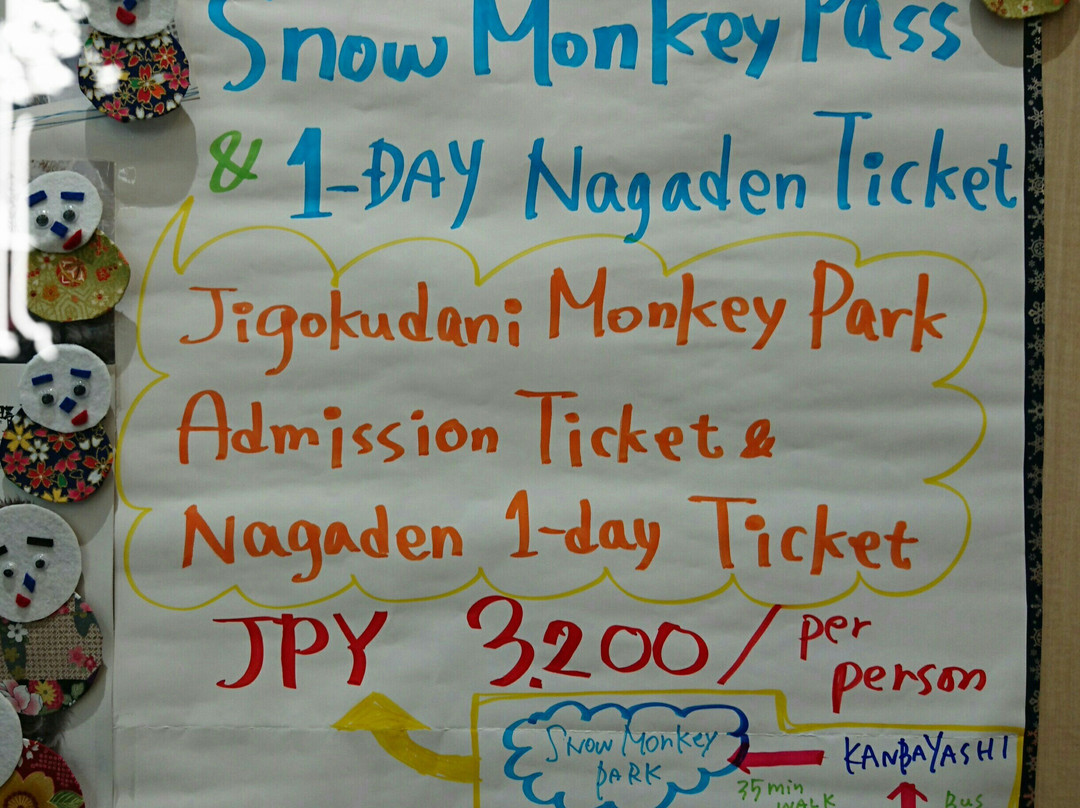 Snow Monkey Pass
& 1-DAY Nagaden Ticket
Jigokudani Monkey Park
Admission Ticket &
Nagaden 1-day Ticket
JPY 3.200/per person
SNOW MONKEY PARK
KANBAYASHI
35 min WALK
BUS